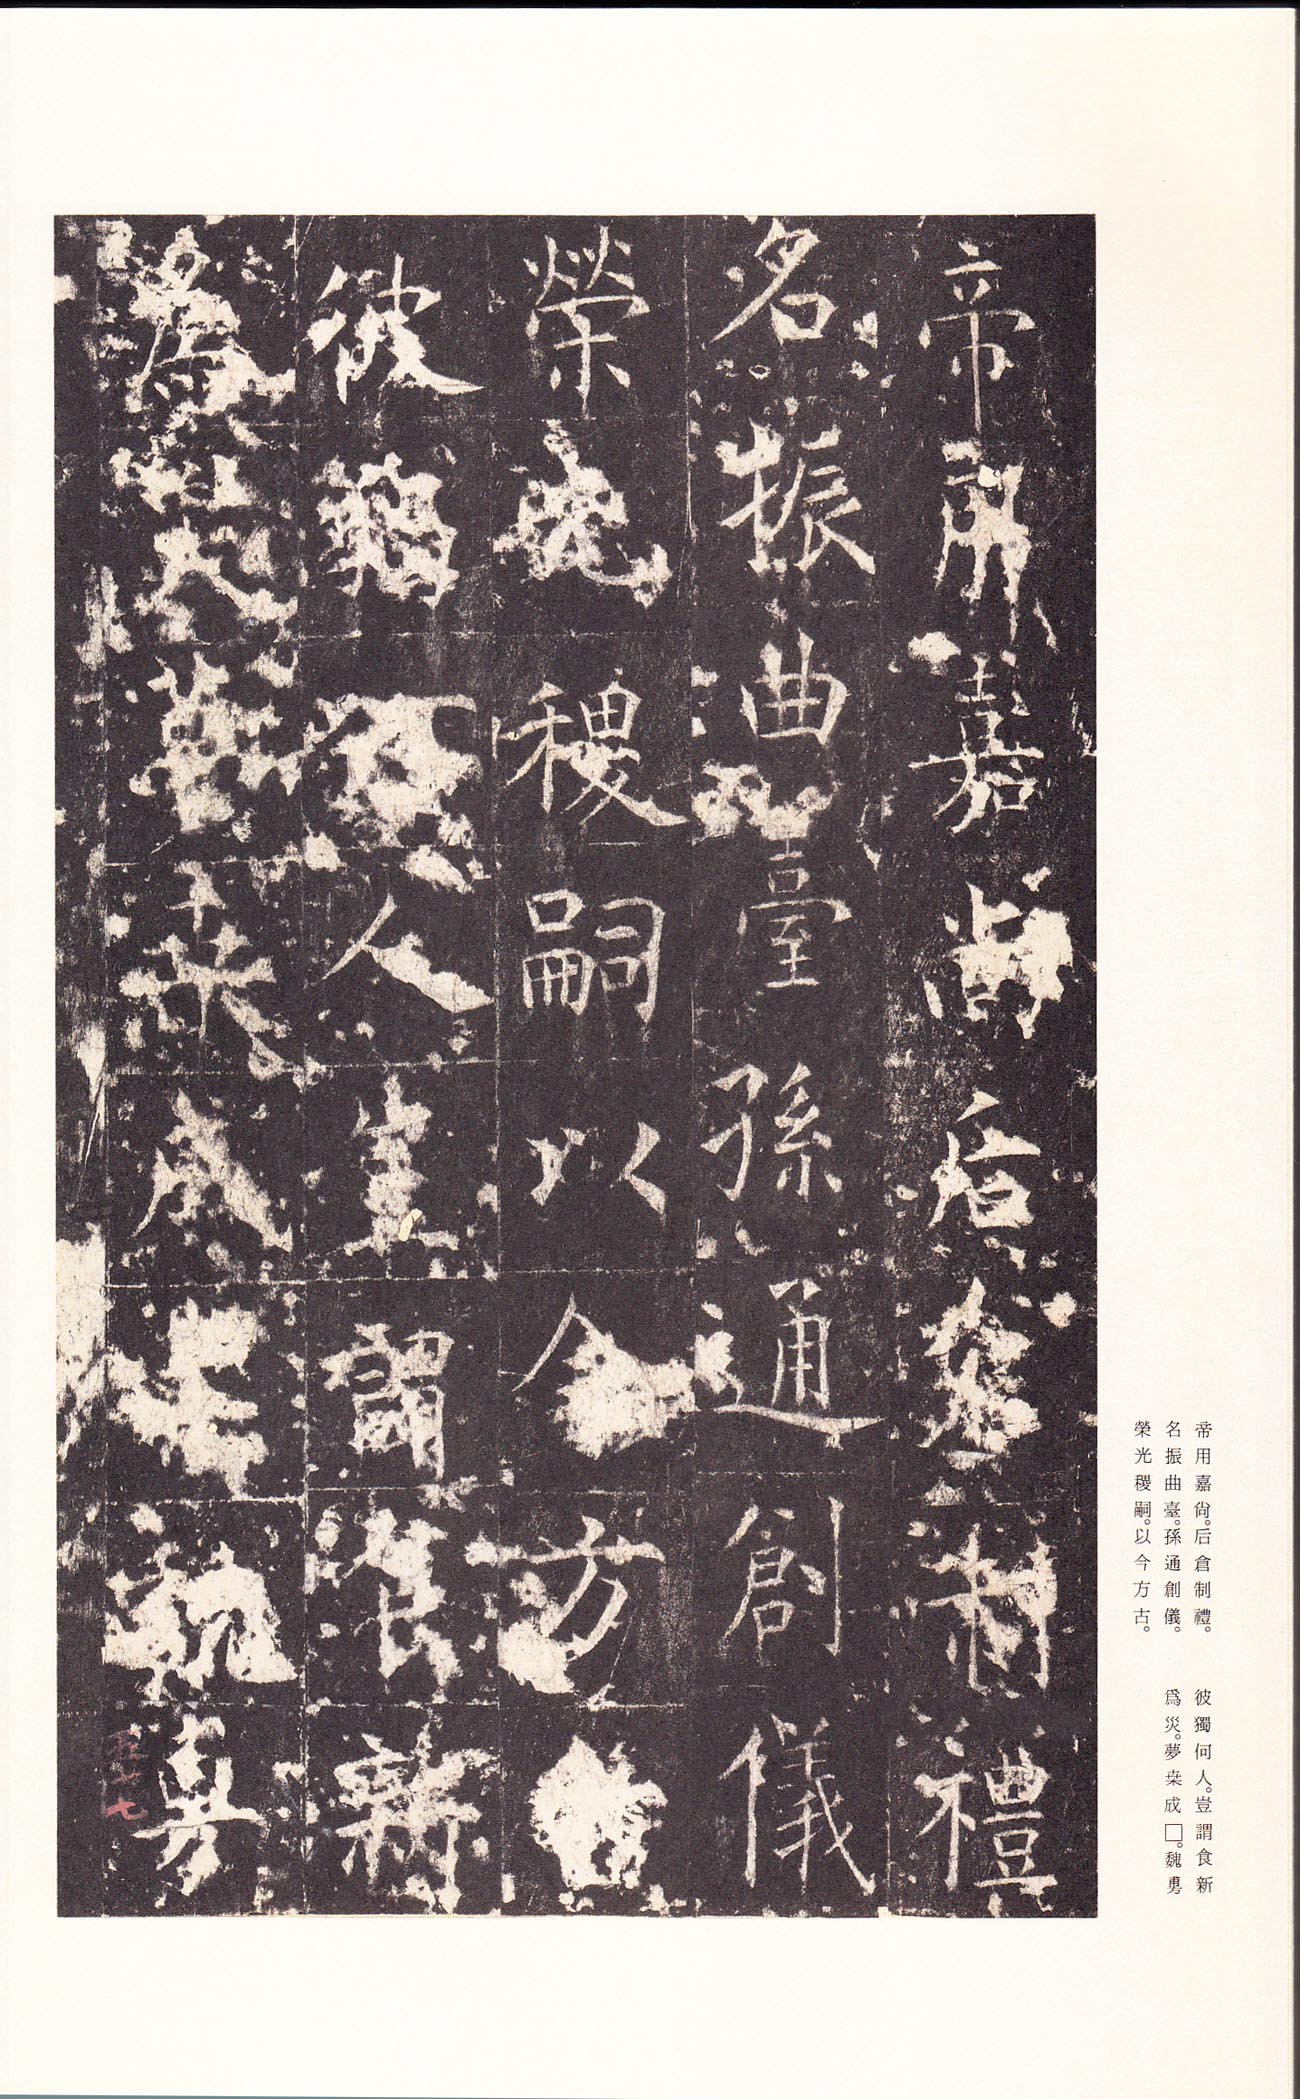 帝用嘉尚后倉制禮
名振曲臺孫通創儀
榮光稷嗣以今方古
彼獨何人豈謂食新
爲災夢桒成魏勇
帝用嘉尙。后倉制禮。
名振曲臺。孫通創儀。
榮光稷嗣。以今方古。
彼獨何人。豈謂食新
爲災。夢桒成□。魏勇